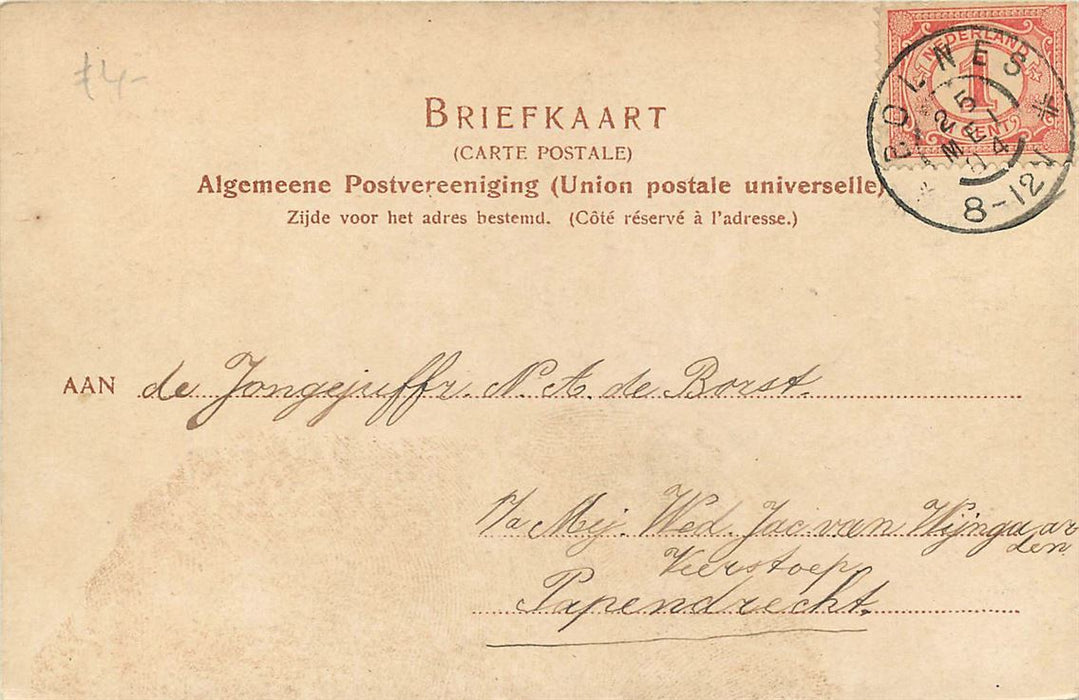 ƒ4-
BRIEFKAART
(CARTE POSTALE)
Algemeene Postvereeniging (Union postale universelle)
Zijde voor het adres bestemd. (Côté réservé à l'adresse.)
NEDERLAND
1
CENT
BOLNES
25
MEI
04
8-12
AAN de Jongejuffr. N. A. de Borst.
p/a Mej. Wed. Jac. van Wijngaar
den
Veerstoep
Papendrecht.